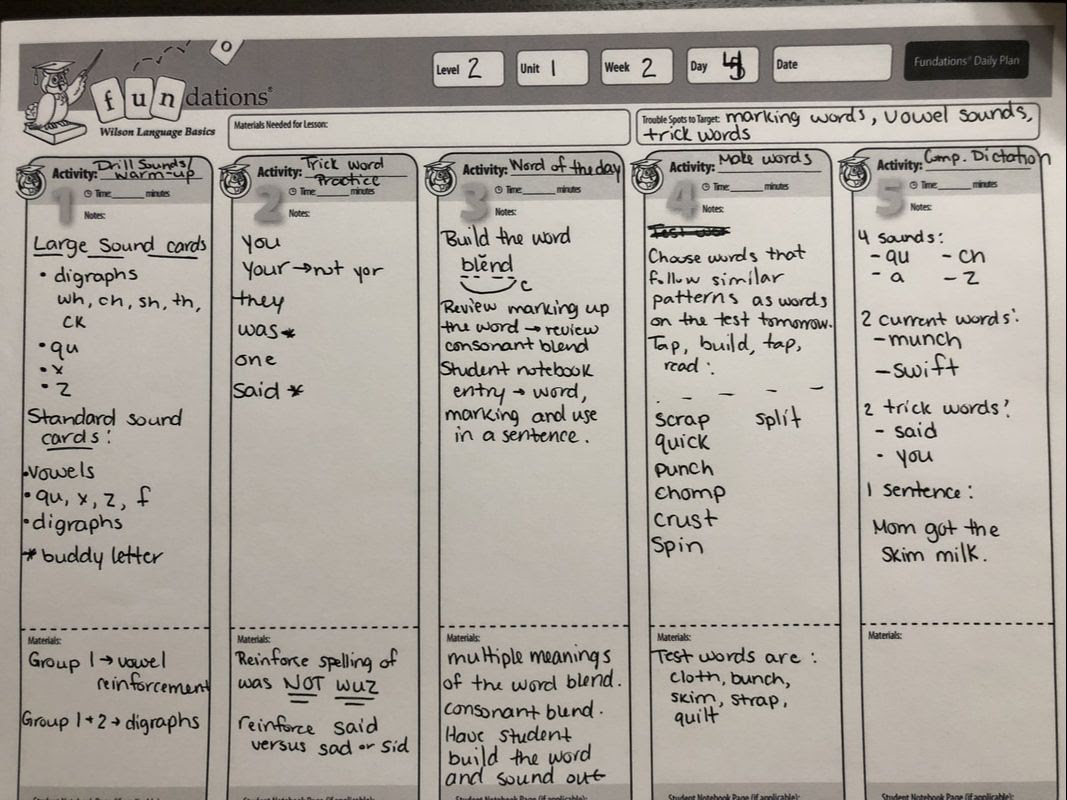 O
fundations®
Wilson Language Basics
Level 2
Unit 1
Week 2
Day 4
Date
Fundations® Daily Plan
Materials Needed for Lesson:
Trouble Spots to Target: marking words, vowel sounds,
trick words
1
Activity: Drill Sounds/
Warm-up
Time minutes
Notes:
Large Sound cards
• digraphs
wh, ch, sh, th,
ck
• qu
• x
• z
Standard sound
cards:
• vowels
• qu, x, z, f
• digraphs
* buddy letter
Materials:
Group 1 → vowel
reinforcement
Group 1+2 → digraphs
2
Activity: Trick Word
Practice
Time minutes
Notes:
you
your → not yor
they
was*
one
said *
Materials:
Reinforce spelling of
was NOT wuz
reinforce said
versus sad or sid
3
Activity: Word of the day
Time minutes
Notes:
Build the word
blĕnd
c
Review marking up
the word → review
consonant blend
Student notebook
entry → word,
marking and use
in a sentence.
Materials:
multiple meanings
of the word blend.
consonant blend.
Have student
build the word
and sound out
4
Activity: Make words
Time minutes
Notes:
Choose words that
follow similar
patterns as words
on the test tomorrow.
Tap, build, tap,
read:
scrap split
quick
punch
chomp
crust
spin
Materials:
Test words are:
cloth, bunch,
skim, strap,
quilt
5
Activity: Comp. Dictation
Time minutes
Notes:
4 sounds:
- qu - ch
- a - z
2 current words:
- munch
- swift
2 trick words:
- said
- you
1 sentence:
Mom got the
skim milk.
Materials:
Student Notebook Page (if applicable)
Student Notebook Page (if applicable)
Student Notebook Page (if applicable)
Student Notebook Page (if applicable)